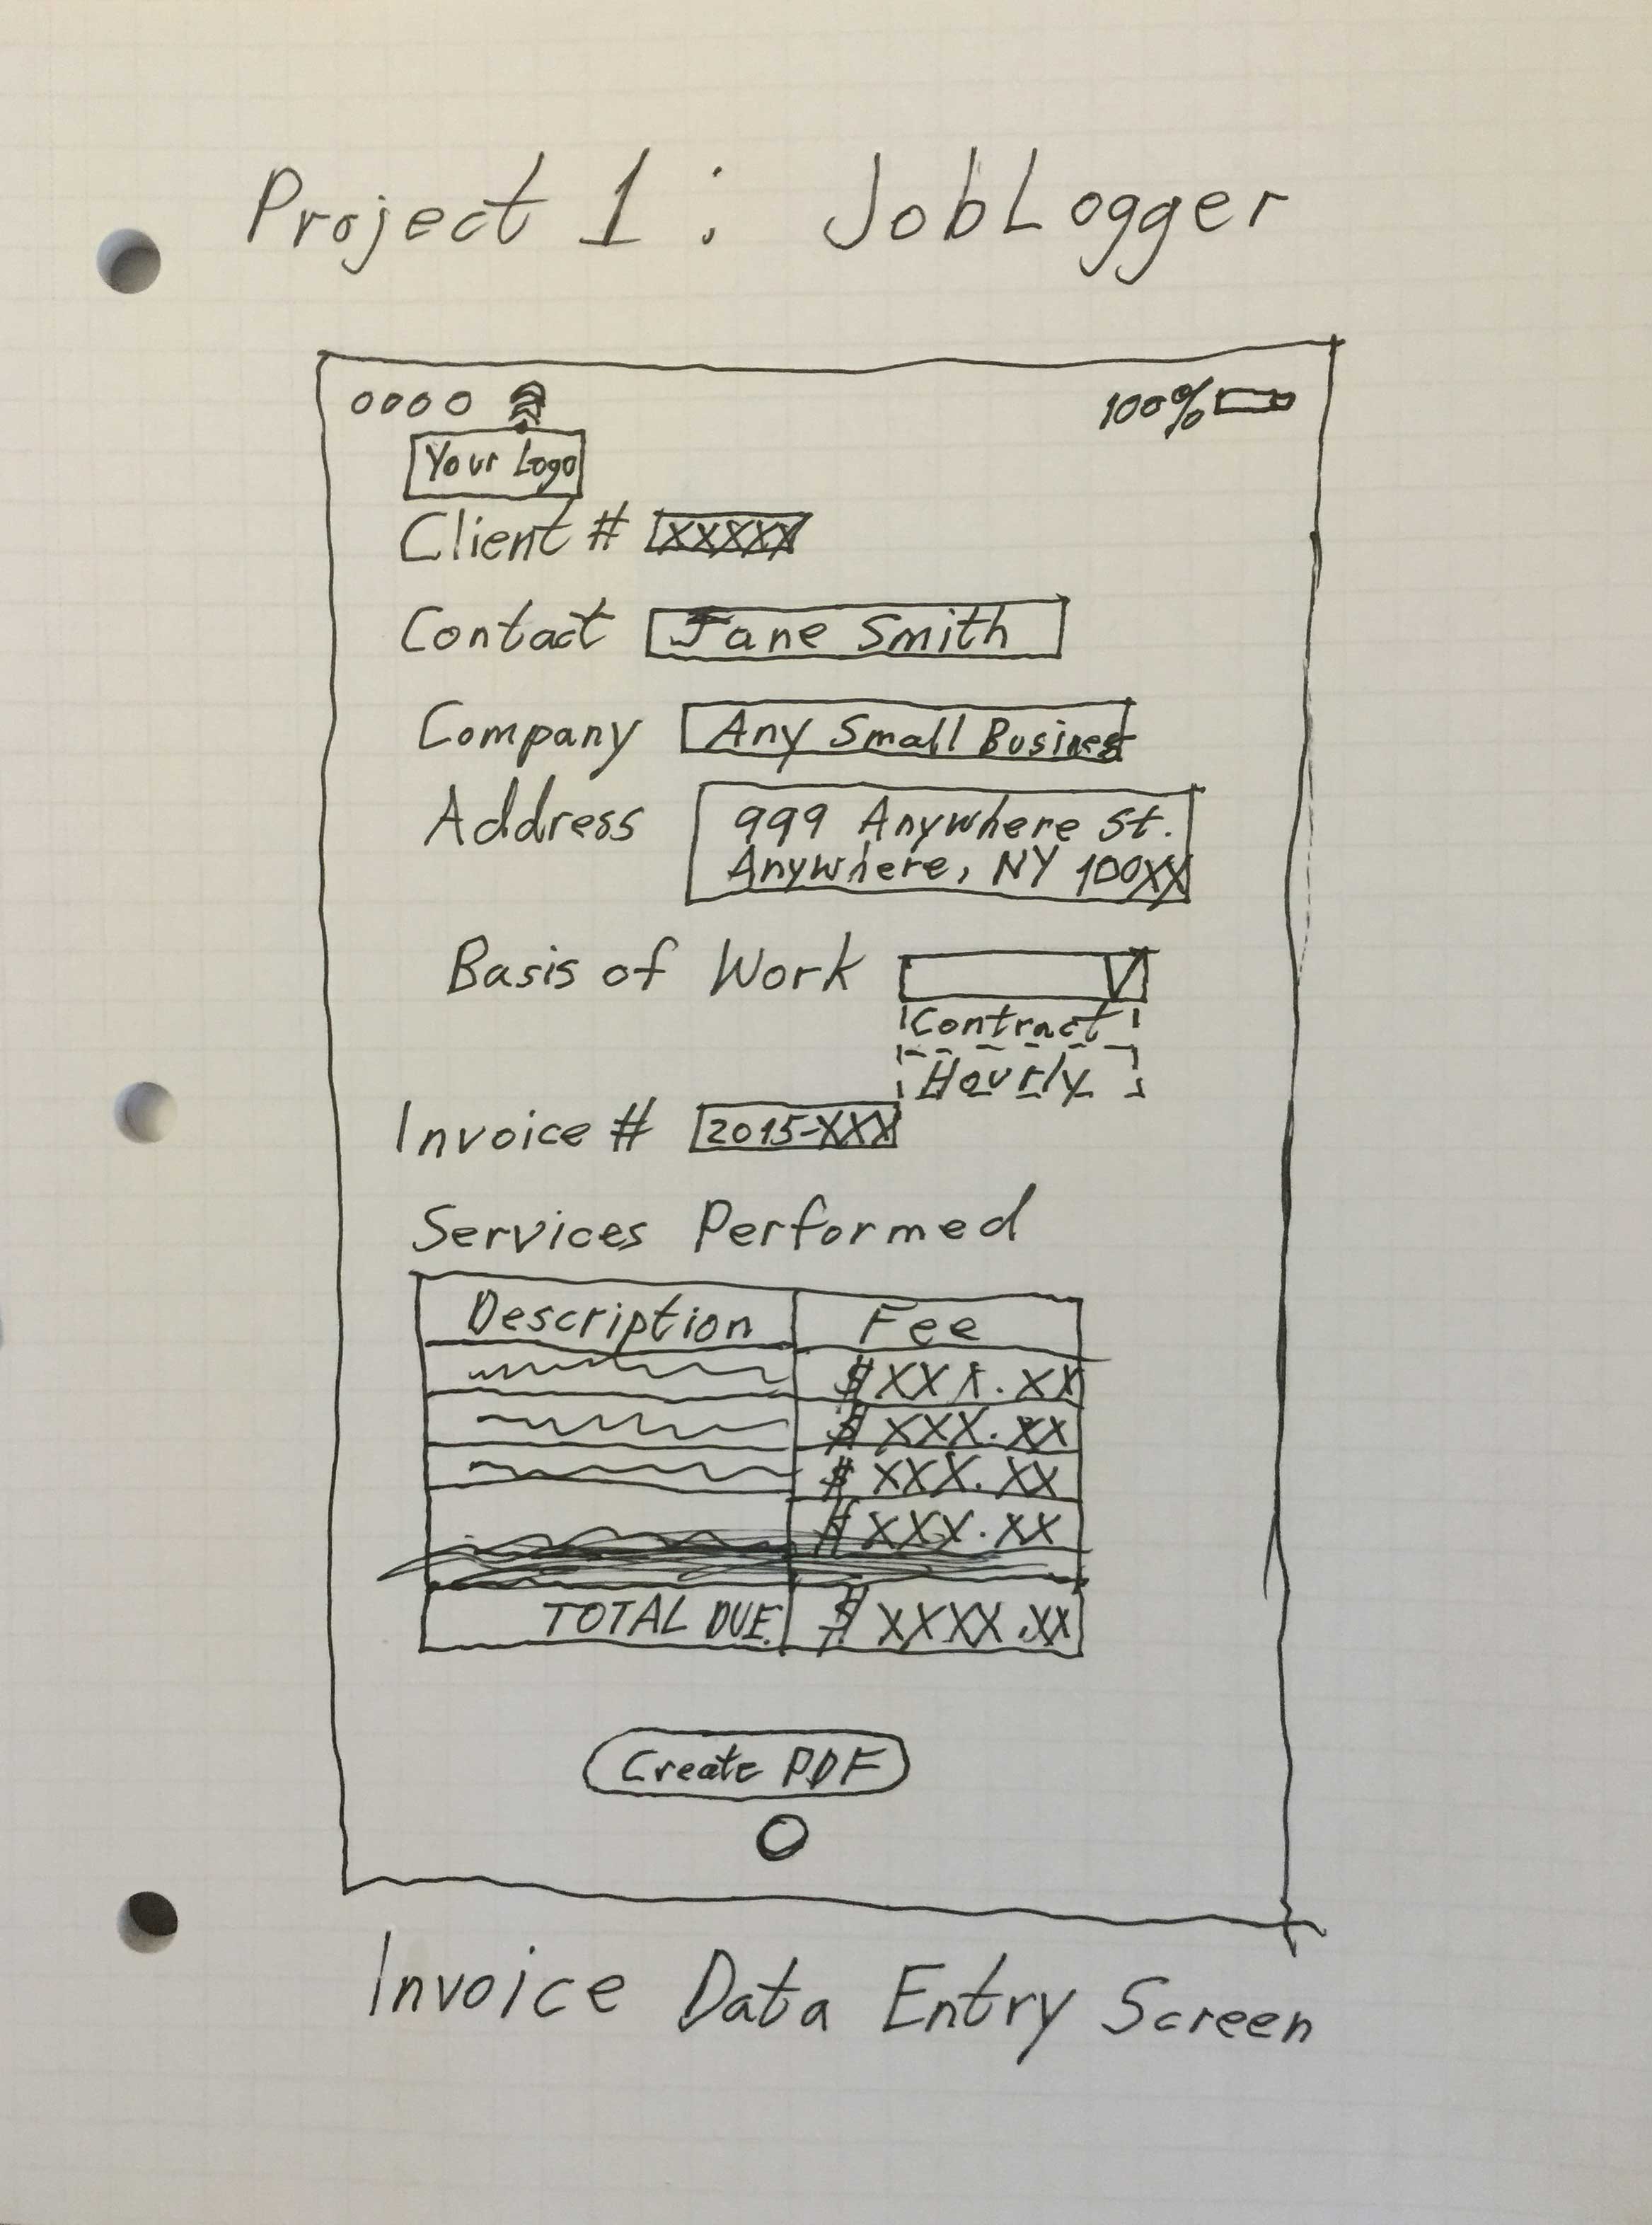 Project 1: JobLogger
100%
Your Logo
Client # XXXXX
Contact Jane Smith
Company Any Small Business
Address 999 Anywhere St.
Anywhere, NY 100XX
Basis of Work
Contract
Hourly
Invoice # 2015-XXX
Services Performed
Description Fee
$XXX.XX
$XXX.XX
$XXX.XX
$XXX.XX
TOTAL DUE $XXXX.XX
Create PDF
Invoice Data Entry Screen